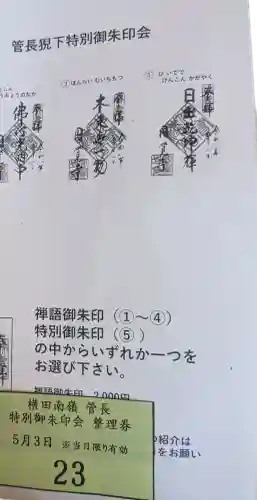 管長猊下特別御朱印会
② ほんらいむいちもつ
③ ひ いでて
けんこん かがやく
奉拝
日出乾坤輝
奉拝
本来無一物
禅語御朱印（①～④）
特別御朱印（⑤ ）
の中からいずれか一つを
お選び下さい。
禅語御朱印 2,000円
紹介は
をお願い
横田南嶺 管長
特別御朱印会 整理券
5月3日 ※当日限り有効
23